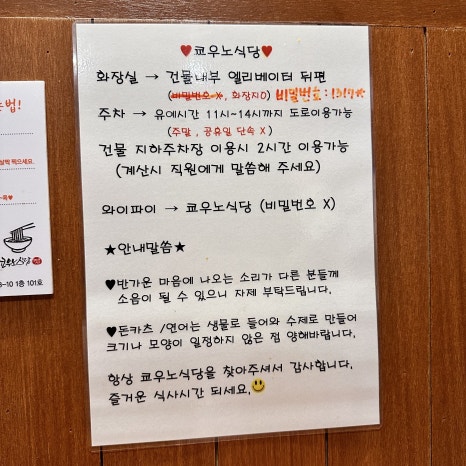 ♥쿄우노식당♥
화장실 → 건물내부 엘리베이터 뒤편
(비밀번호 X, 화장지O) 비밀번호:1317*
주차 → 유예시간 11시~14시까지 도로이용가능
(주말, 공휴일 단속 X)
건물 지하주차장 이용시 2시간 이용가능
(계산시 직원에게 말씀해 주세요)
와이파이 → 쿄우노식당 (비밀번호 X)
★안내말씀★
♥반가운 마음에 나오는 소리가 다른 분들께
소음이 될 수 있으니 자제 부탁드립니다.
♥돈카츠 /연어는 생물로 들어와 수제로 만들어
크기나 모양이 일정하지 않은 점 양해바랍니다.
항상 쿄우노식당을 찾아주셔서 감사합니다.
즐거운 식사시간 되세요.
는법!
살짝 찍으세요.
쿄우노식당
-10 1층 101호